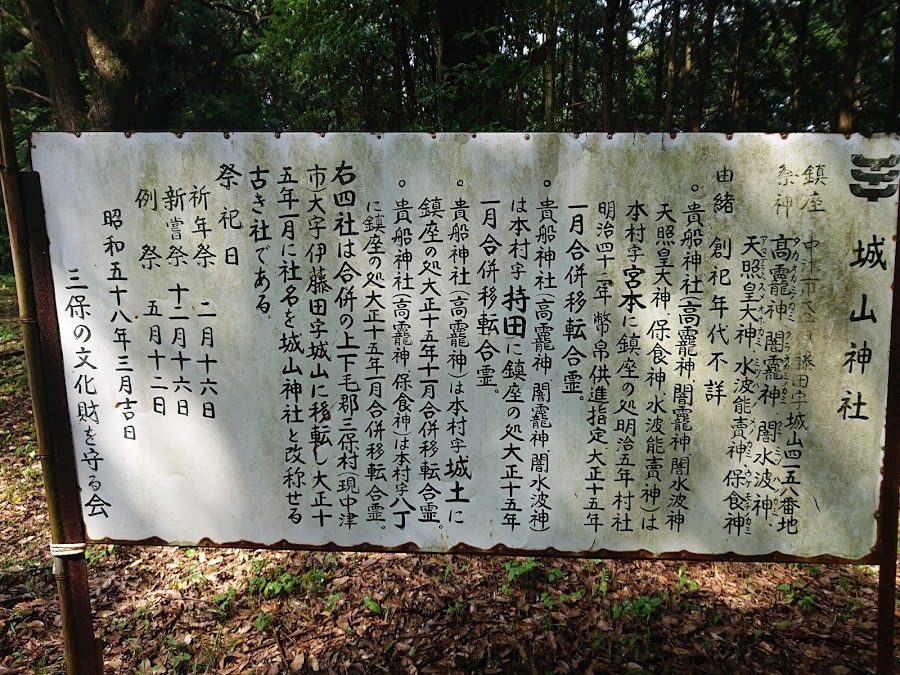 城山神社
鎮座 中津市 藤田字城山四一五八番地
祭神 高龗神、闇龗神、闇水波神、
タカオカミノカミ
天照皇大神、水波能賣神、保食神
由緒 創祀年代不詳
。貴船神社(高龗神、闇龗神、闇水波神
天照皇大神、保食神、水波能賣神)は
本村字宮本に鎮座の処明治五年村社
明治四十二年幣帛供進指定、大正十五年
一月合併移転合霊。
。貴船神社(高龗神、闇龗神、闇水波神)
は本村字持田に鎮座の処大正十五年
一月合併移転合霊。
。貴船神社(高龗神)は本村字城土に
鎮座の処大正十五年十一月合併移転合霊。
。貴船神社(高龗神、保食神)は本村字八丁
に鎮座の処大正十五年一月合併移転合霊。
右四社は合併の上下毛郡三保村(現中津
市)大字伊藤田字城山に移転し大正十
五年一月に社名を城山神社と改称せる
古き社である。
祭祀日
祈年祭 二月十六日
新嘗祭 十二月十六日
例祭 五月十二日
昭和五十八年三月吉日
三保の文化財を守る会